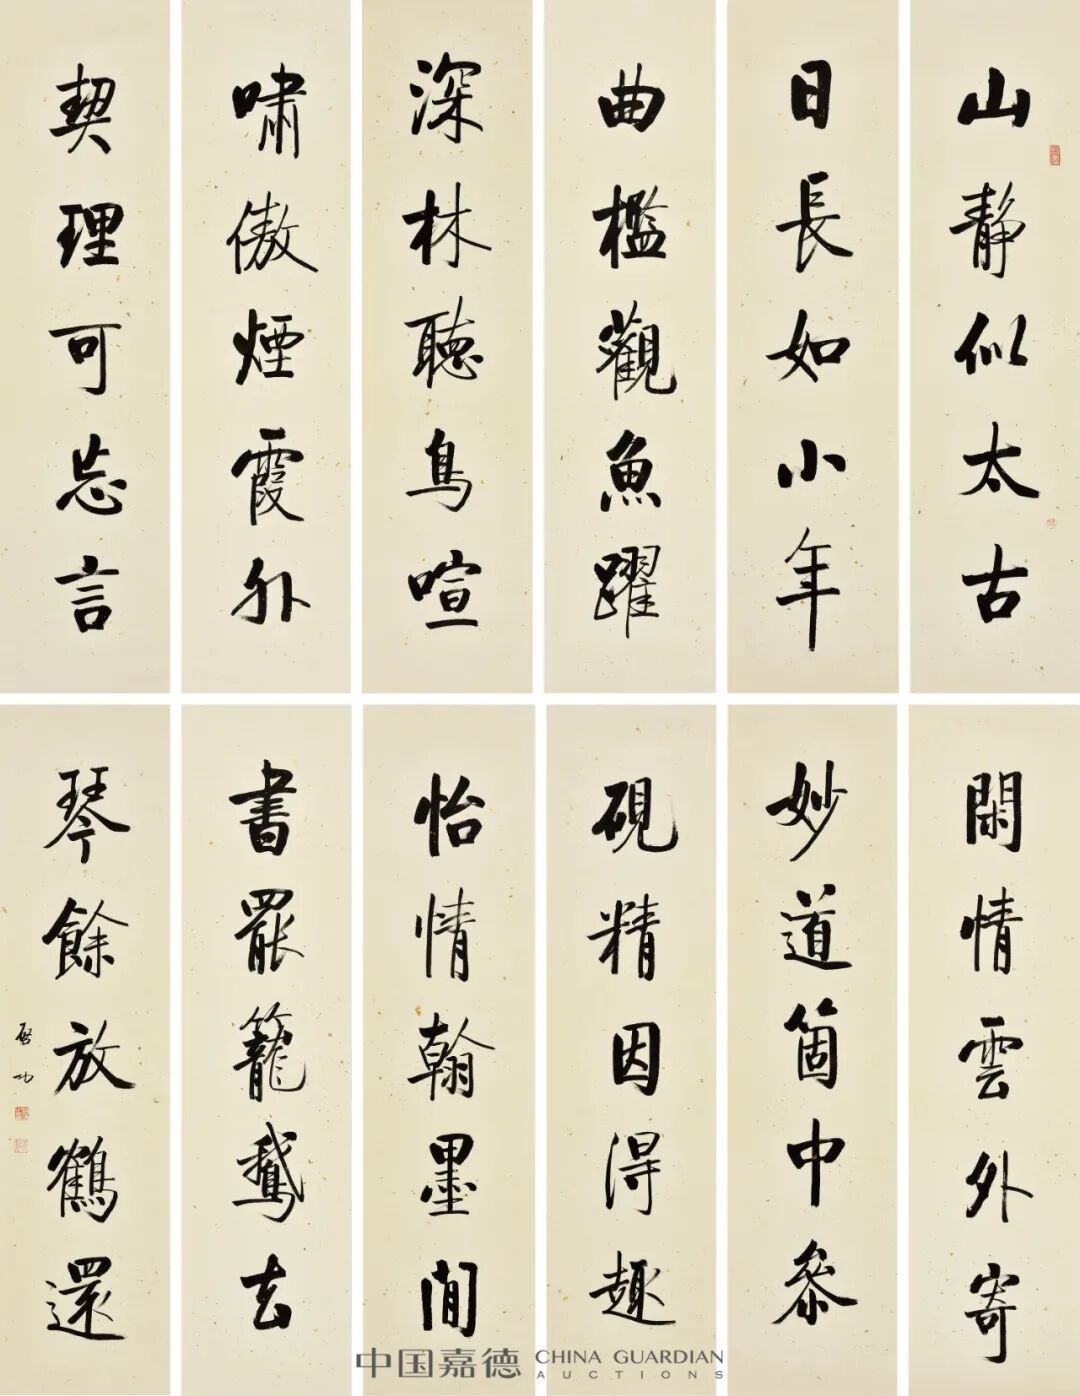 山靜似太古
日長如小年
曲檻觀魚躍
深林聽鳥喧
嘯傲煙霞外
契理可忘言
閑情雲外寄
妙道箇中參
硯精因得趣
怡情翰墨間
書罷籠鵞去
琴餘放鶴還
啓功
中国嘉德 CHINA GUARDIAN
AUCTIONS